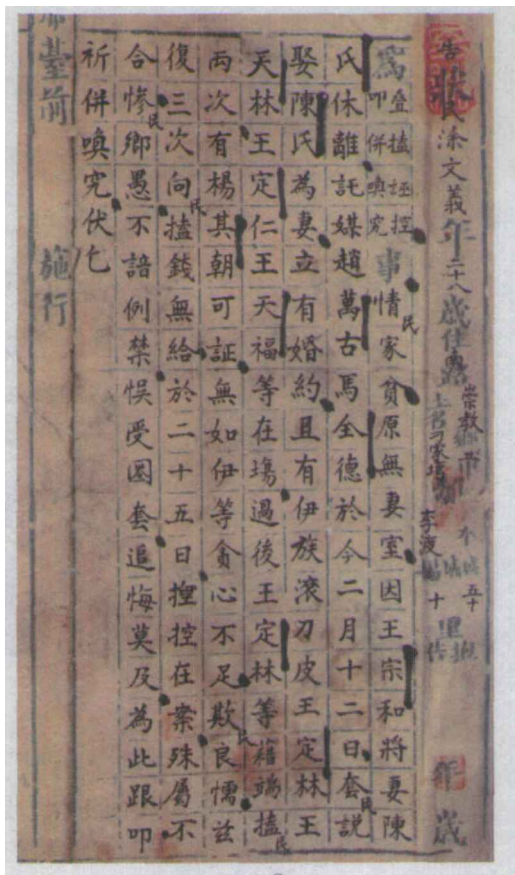 告狀民涂文義年二十八歲住
為叠搕誣控叩併喚究事情民家貧原無妻室因王宗和將妻陳
氏休離託媒趙萬古馬全德於今二月十二日套民說
娶陳氏為妻立有婚約且有伊族滾刀皮王定林王
天林王定仁王天福等在塲過後王定林等藉端搕民
両次有楊其朝可証無如伊等貪心不足欺民良懦兹
復三次向民搕錢無給於二十五日捏控在案殊屬不
合慘民鄉愚不諳例禁悞受圈套追悔莫及為此跟叩
祈併喚究伏乞
臺前 施行